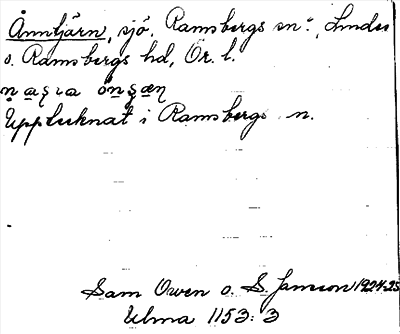 Ånntjärn, sjö, Ramsbergs sn:, Lindes
o. Ramsbergs hd, Ör. l.
Upptecknat i Ramsbergs n.
Sam Owen o. S. Janson 1924-25
Ulma 1153:3